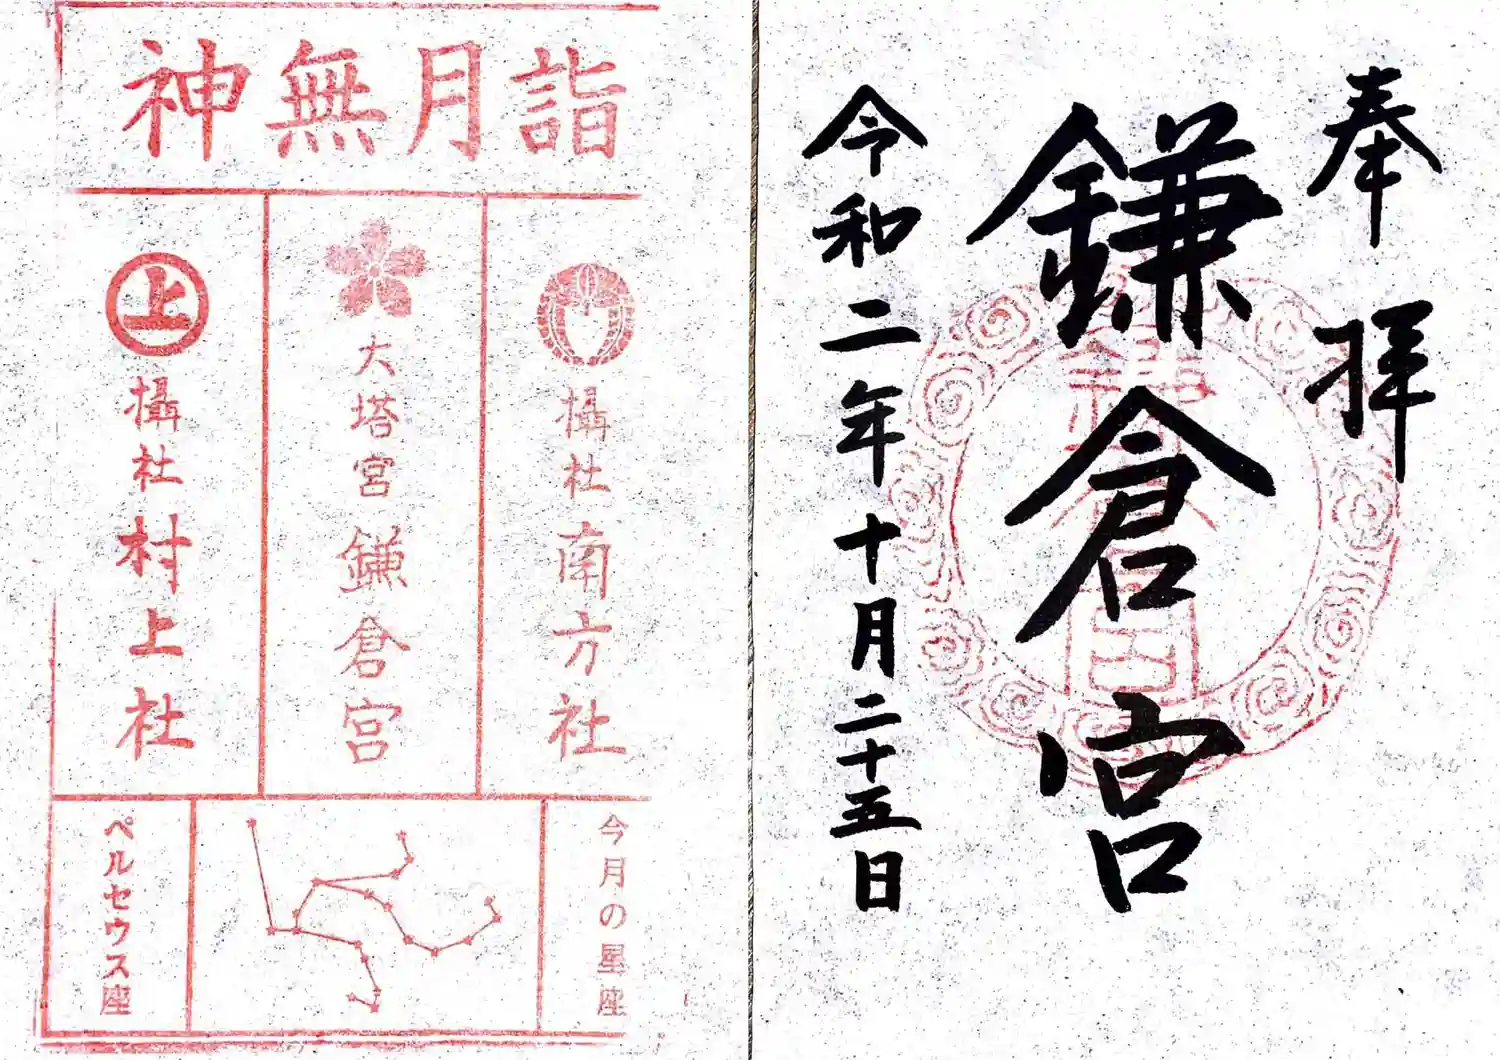 奉拝
鎌倉宮
令和二年十月二十五日
神無月詣
摂社南方社
大塔宮鎌倉宮
上
摂社村上社
今月の星座
ペルセウス座